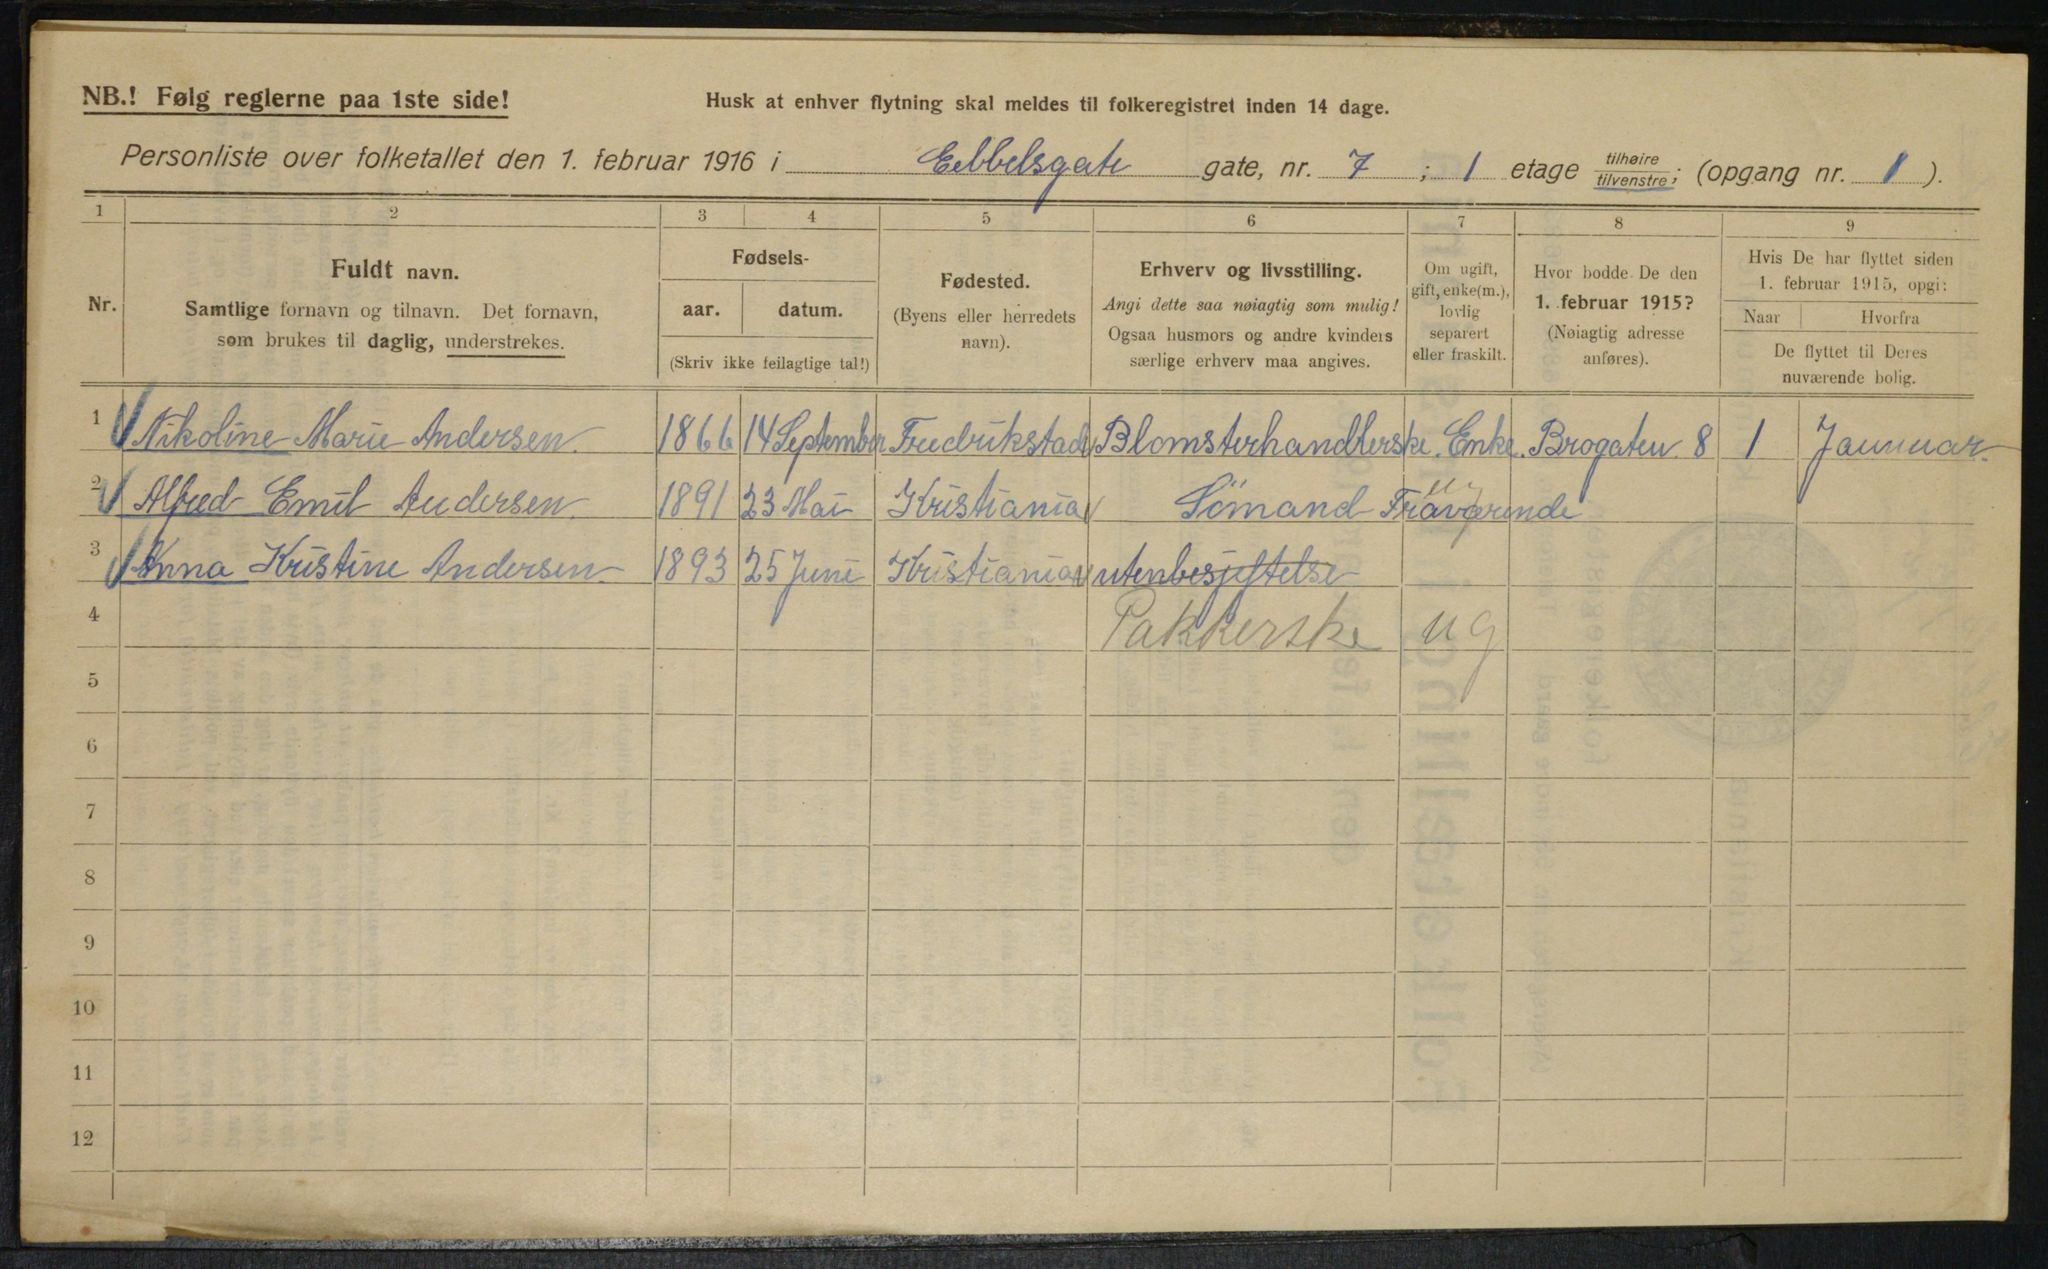 NB.! Følg reglerne paa 1ste side!
Husk at enhver flytning skal meldes til folkeregistret inden 14 dage.
Personliste over folketallet den 1. februar 1916 i Eebbelsgate gate, nr. 7 ; 1 etage tilhøire tilvenstre; (opgang nr. 1 ).
1 2 3 4 5 6 7 8 9
Nr.
Fuldt navn.
Samtlige fornavn og tilnavn. Det fornavn,
som brukes til daglig, understrekes.
Fødsels-
aar. datum.
(Skriv ikke feilagtige tal!)
Fødested.
(Byens eller herredets
navn).
Erhverv og livsstilling.
Angi dette saa nøiagtig som mulig!
Ogsaa husmors og andre kvinders
særlige erhverv maa angives.
Om ugift,
gift, enke(m.),
lovlig
separert
eller fraskilt.
Hvor bodde De den
1. februar 1915?
(Nøiagtig adresse
anføres).
Hvis De har flyttet siden
1. februar 1915, opgi:
Naar Hvorfra
De flyttet til Deres
nuværende bolig.
1 Nikoline Marie Andersen. 1866 14 September Fredrikstad Blomsterhandlerske Enke. Brogaten 8 1 Januuar.
2 Alfred Emil Andersen. 1891 23 Mai Kristiania Sömand Fraværende ug
3 Anna Kristine Andersen. 1893 25 Juni Kristiania utenbesjeftelse
4 Pakkerske ug
5
6
7
8
9
10
11
12